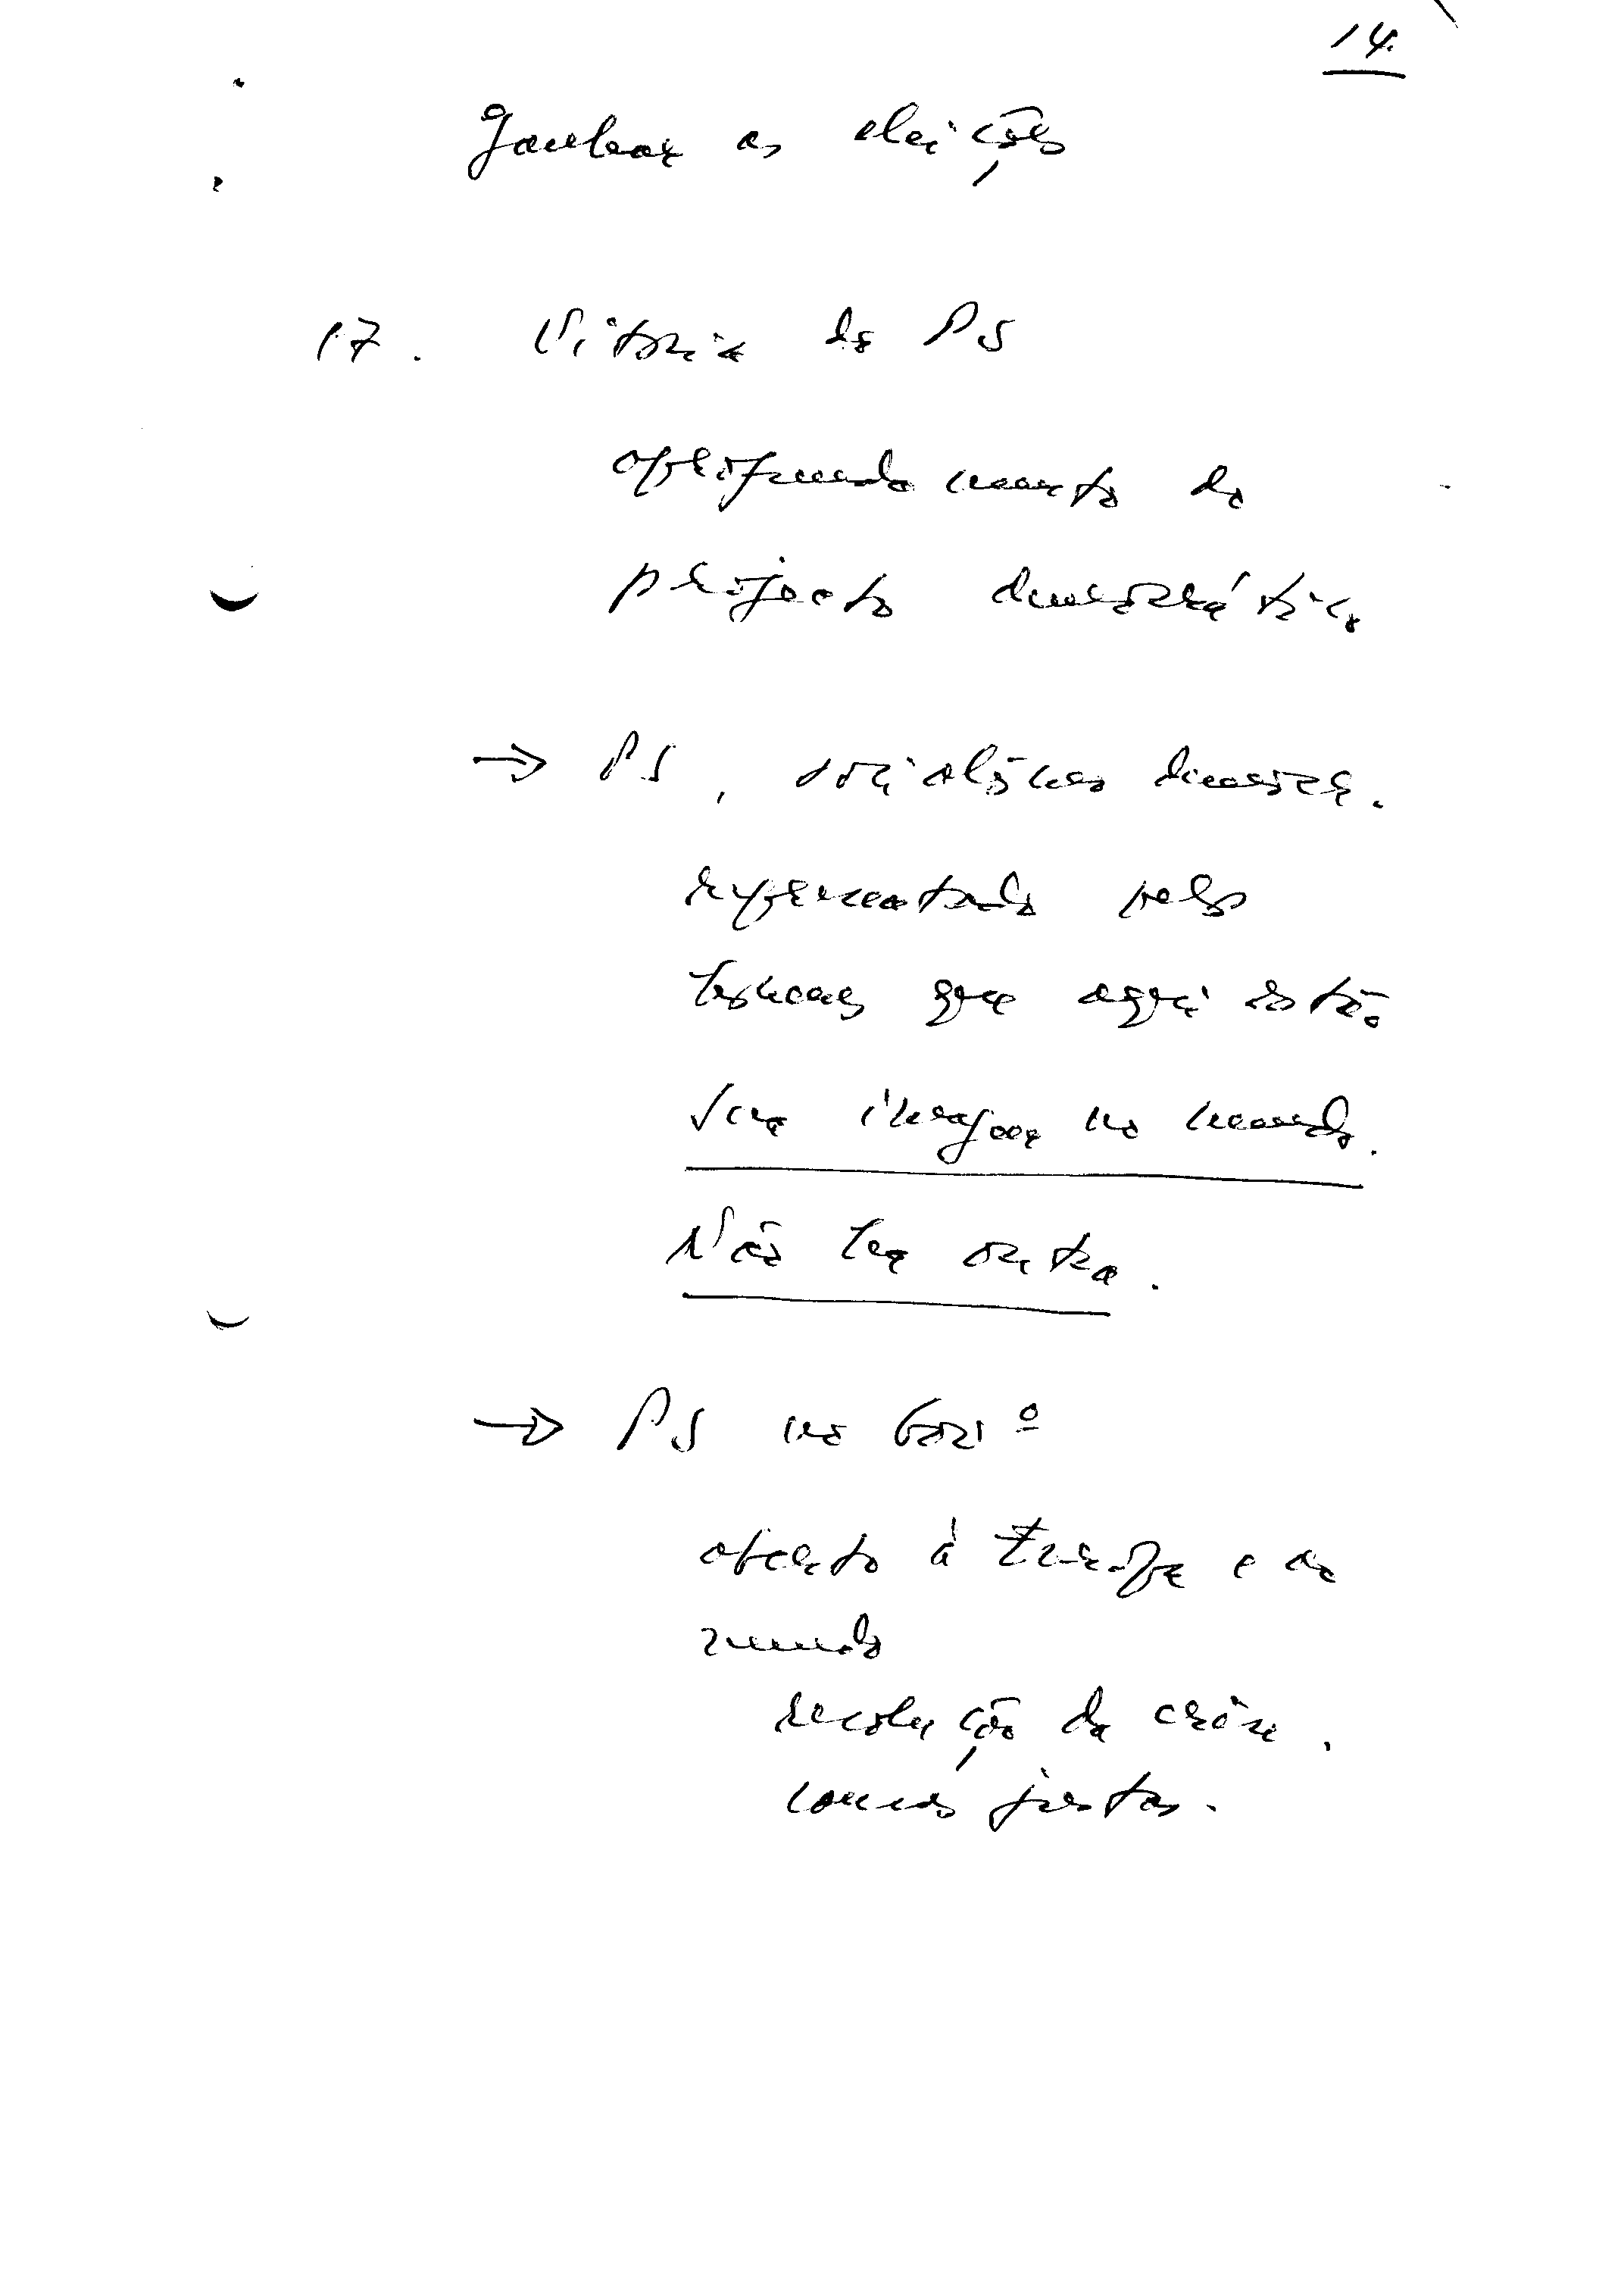 14.
Ganhar as eleições
17. Vitória do PS
aprofundamento do
projecto democrático
→ PS, socialismo democrá.
representado pelos
homens que aqui estão
Sua imagem no mundo.
Não tem outra.
→ PS no Govº
aberto à Europa e ao
mundo
resolução da crise.
contas justas.